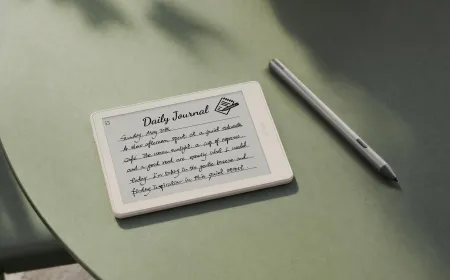 Daily Journal
Sunday, May 7th
A slow afternoon spent at a quiet seaside
cafe. The warm sunlight, a cup of espresso
and a good book are exactly what I needed
today. I'm taking in the gentle breeze and
finding inspiration in this quiet